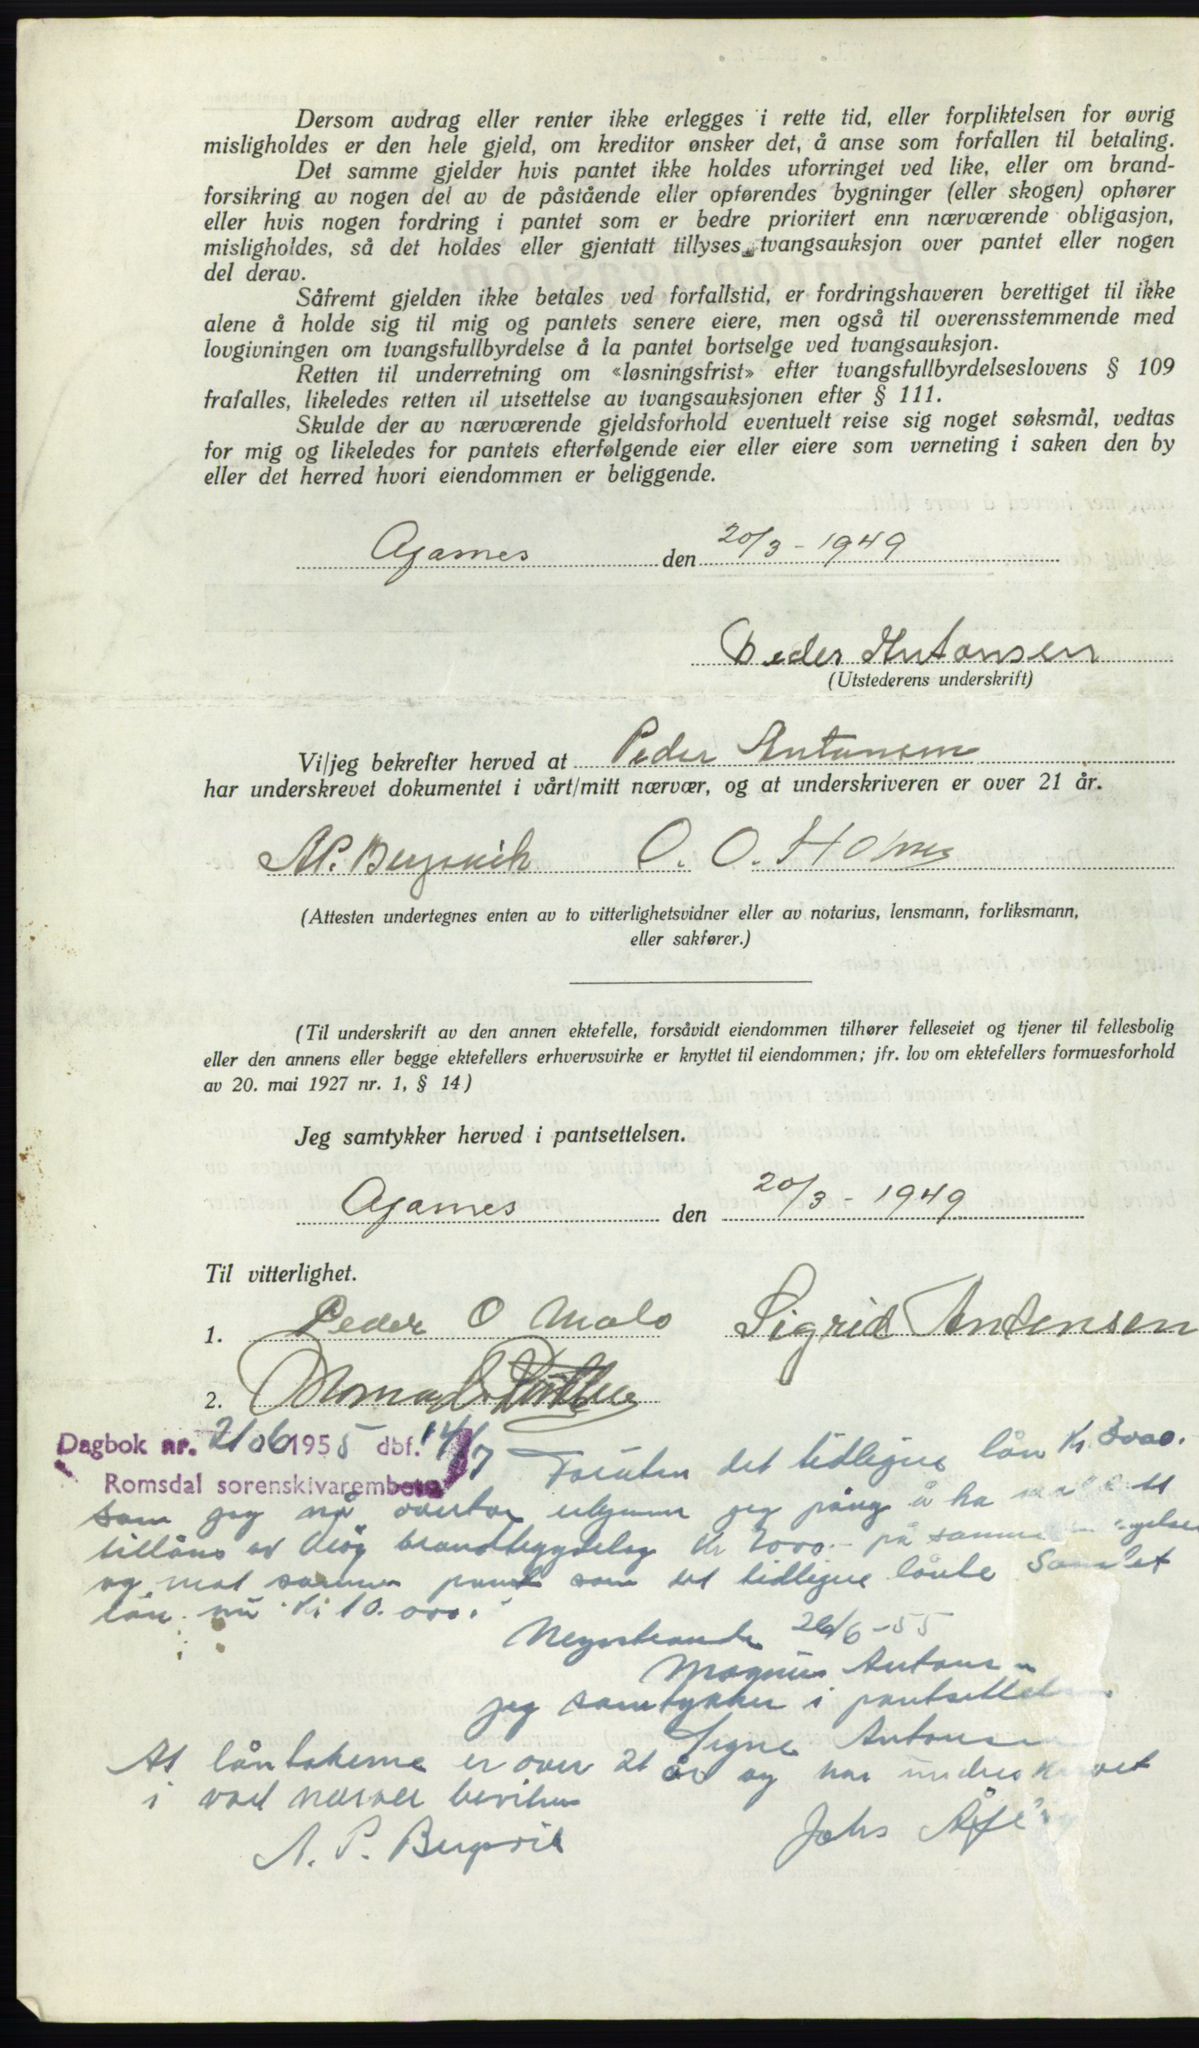 Dersom avdrag eller renter ikke erlegges i rette tid, eller forpliktelsen for øvrig
misligholdes er den hele gjeld, om kreditor ønsker det, å anse som forfallen til betaling.
Det samme gjelder hvis pantet ikke holdes uforringet ved like, eller om brand-
forsikring av nogen del av de påstående eller opførendes bygninger (eller skogen) ophører
eller hvis nogen fordring i pantet som er bedre prioritert enn nærværende obligasjon,
misligholdes, så det holdes eller gjentatt tillyses tvangsauksjon over pantet eller nogen
del derav.
Såfremt gjelden ikke betales ved forfallstid, er fordringshaveren berettiget til ikke
alene å holde sig til mig og pantets senere eiere, men også til overensstemmende med
lovgivningen om tvangsfullbyrdelse å la pantet bortselge ved tvangsauksjon.
Retten til underretning om «løsningsfrist» efter tvangsfullbyrdelseslovens § 109
frafalles, likeledes retten til utsettelse av tvangsauksjonen efter § 111.
Skulde der av nærværende gjeldsforhold eventuelt reise sig noget søksmål, vedtas
for mig og likeledes for pantets efterfølgende eier eller eiere som verneting i saken den by
eller det herred hvori eiendommen er beliggende.
den 20/3 - 1949
Peder Antonsen
(Utstederens underskrift)
Vi/jeg bekrefter herved at Peder Antonsen
har underskrevet dokumentet i vårt/mitt nærvær, og at underskriveren er over 21 år.
O. O. Holmes
(Attesten undertegnes enten av to vitterlighetsvidner eller av notarius, lensmann, forliksmann,
eller sakfører.)
(Til underskrift av den annen ektefelle, forsåvidt eiendommen tilhører felleseiet og tjener til fellesbolig
eller den annens eller begge ektefellers erhvervsvirke er knyttet til eiendommen; jfr. lov om ektefellers formuesforhold
av 20. mai 1927 nr. 1, § 14)
Jeg samtykker herved i pantsettelsen.
den 20/3 - 1949
Til vitterlighet.
1. Peder O Malo Sigrid Antonsen
2.
Dagbok nr. 2106 1955 dbf. 14/7 Foruten det tidligere lån Kr. 3000.
Romsdal sorenskivarembete
som jeg nå overtar
brandbygdelag på samme
og mot samme pant som det tidligere lånte Samlet
lån nu Kr 10.000.
26/6-55
Magnus Antonsen
jeg samtykker i pantsettelsen
Signe Antonsen
At låntakerne er over 21 år og har underskrevet
i vort nærvær
A. P. Johs